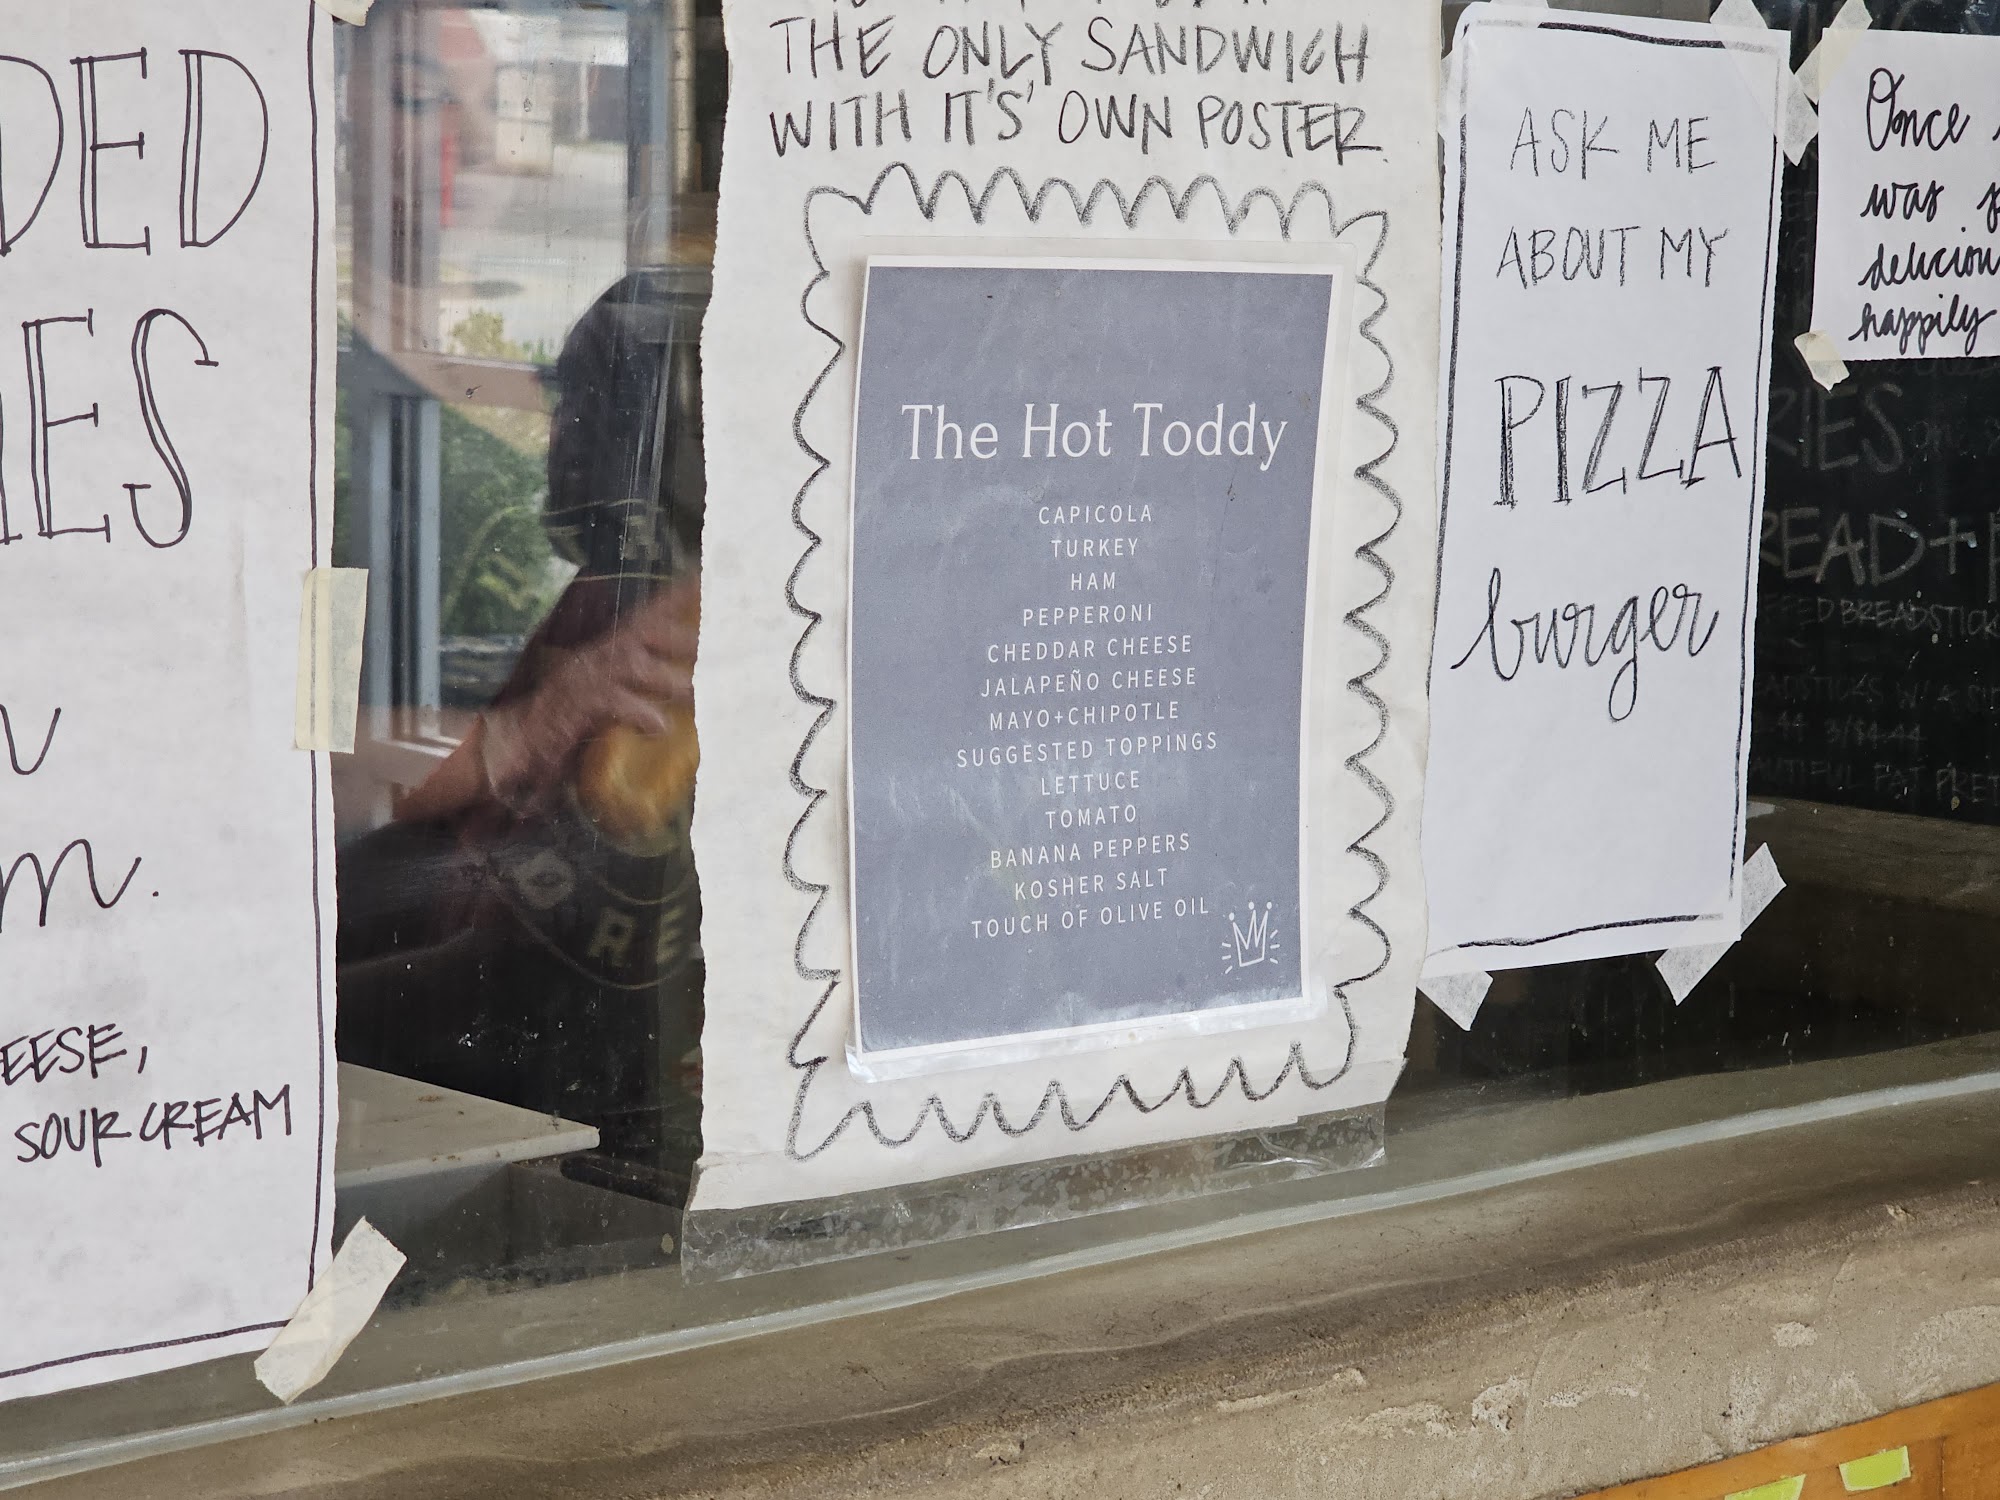 DED
IES
m.
EESE,
SOUR CREAM
THE ONLY SANDWICH
WITH IT'S' OWN POSTER.
The Hot Toddy
CAPICOLA
TURKEY
HAM
PEPPERONI
CHEDDAR CHEESE
JALAPEÑO CHEESE
MAYO+CHIPOTLE
SUGGESTED TOPPINGS
LETTUCE
TOMATO
BANANA PEPPERS
KOSHER SALT
TOUCH OF OLIVE OIL
ASK ME
ABOUT MY
PIZZA
burger
Once
was
delicious
happily
RIES
READ+P
FFED BREADSTICK
3/$4.44